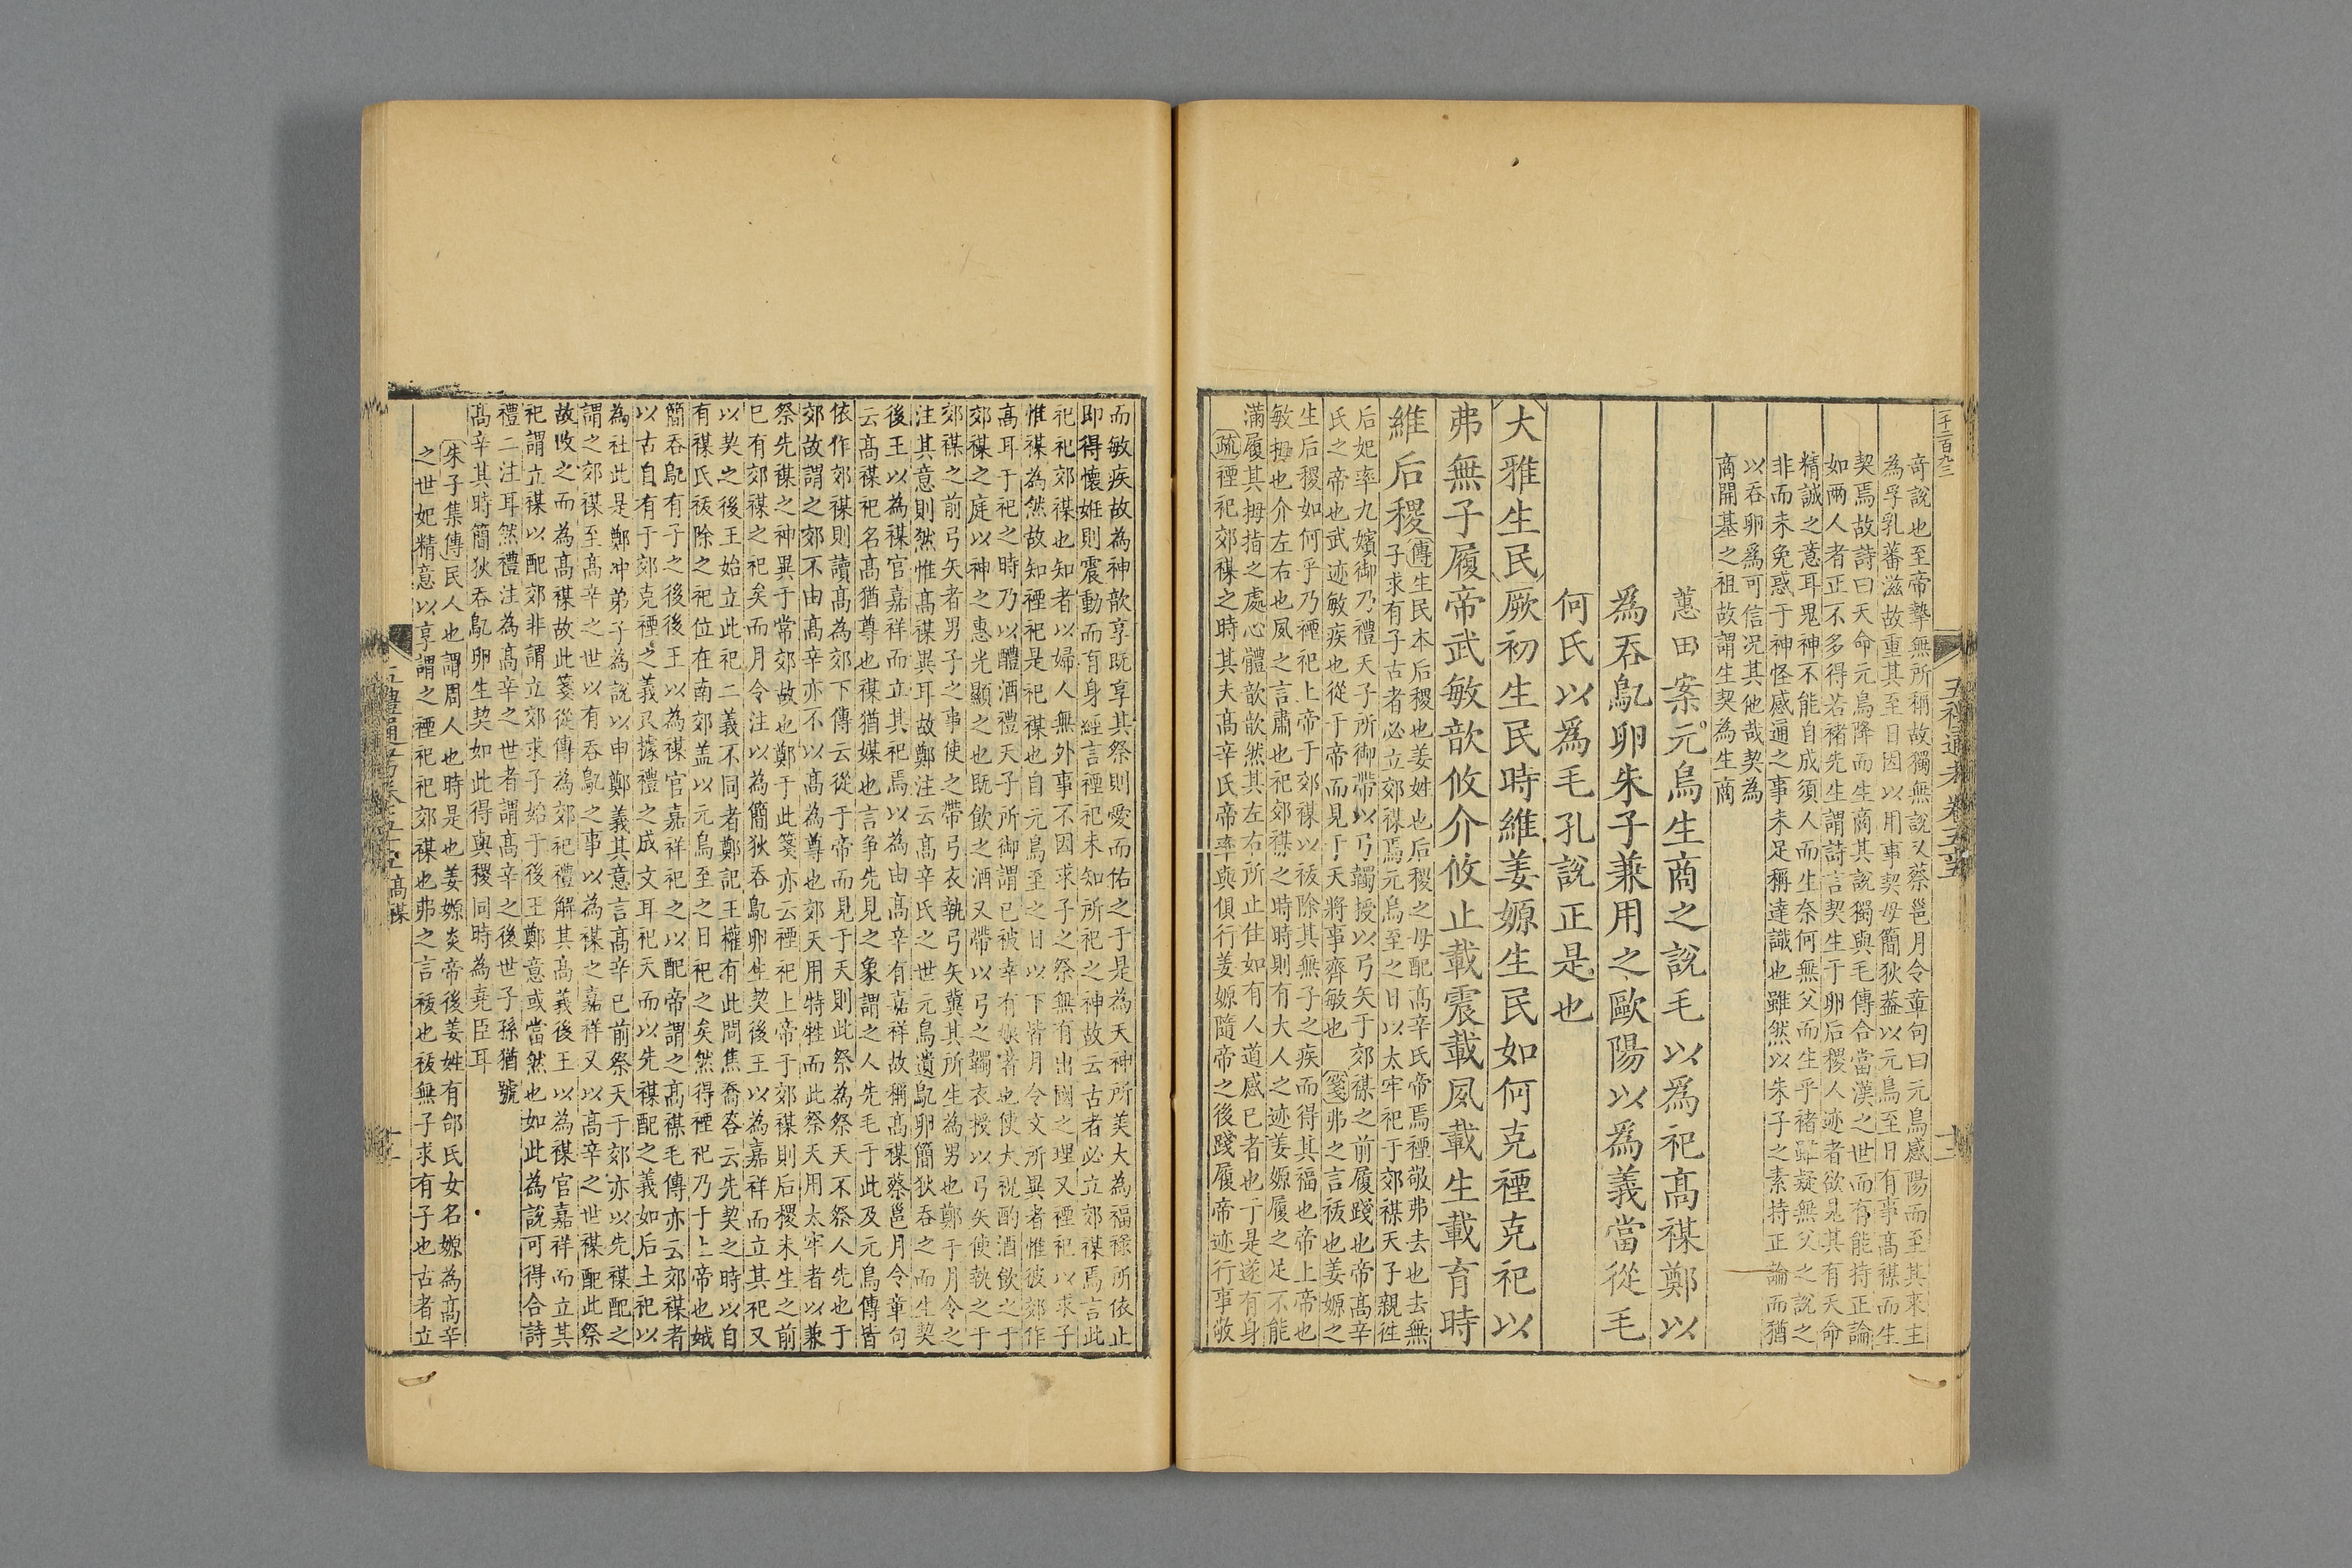 一千二百九三
五禮通考卷五十五
十一
奇說也至帝摯無所稱故獨無說又蔡邕月令章句曰元鳥感陽而至其來主
為孚乳蕃滋故重其至日因以用事契母簡狄葢以元鳥至日有事髙禖而生
契焉故詩曰天命元鳥降而生商其說獨與毛傳合當漢之世而有能持正論
如兩人者正不多得若褚先生謂詩言契生于卵后稷人迹者欲見其有天命
精誠之意耳鬼神不能自成須人而生奈何無父而生乎褚雖疑無父之說之
非而未免惑于神怪感通之事未足稱達識也雖然以朱子之素持正論而猶
以吞卵爲可信况其他哉契為
商開基之祖故謂生契為生商
蕙田案元鳥生商之說毛以爲祀髙禖鄭以
爲吞鳦卵朱子兼用之歐陽以爲義當從毛
何氏以爲毛孔說正是也
大雅生民厥初生民時維姜嫄生民如何克禋克祀以
弗無子履帝武敏歆攸介攸止載震載夙載生載育時
維后稷
傳生民本后稷也姜姓也后稷之母配髙辛氏帝焉禋敬弗去也去無
子求有子古者必立郊禖焉元鳥至之日以太牢祀于郊禖天子親往
后妃率九嬪御乃禮天子所御帶以弓韣授以弓矢于郊禖之前履踐也帝髙辛
氏之帝也武迹敏疾也從于帝而見于天將事齊敏也 箋弗之言祓也姜嫄之
生后稷如何乎乃禋祀上帝于郊禖以祓除其無子之疾而得其福也帝上帝也
敏拇也介左右也夙之言肅也祀郊禖之時時則有大人之迹姜嫄履之足不能
滿履其拇指之處心體歆歆然其左右所止住如有人道感已者也于是遂有身
疏禋祀郊禖之時其夫髙辛氏帝率與俱行姜嫄隨帝之後踐履帝迹行事敬
而敏疾故為神歆享既享其祭則愛而佑之于是為天神所美大為福祿所依止
即得懷姙則震動而有身經言禋祀未知所祀之神故云古者必立郊禖焉言此
祀祀郊禖也知者以婦人無外事不因求子之祭無有出國之理又禋祀以求子
惟禖為然故知禋祀是祀禖也自元鳥至之日以下皆月令文所異者惟彼郊作
髙耳于祀之時乃以醴酒禮天子所御謂已被幸有娠者也使太祝酌酒飲之于
郊禖之庭以神之惠光顯之也既飲之酒又帶以弓之韣衣授以弓矢使執之于
郊禖之前弓矢者男子之事使之帶弓衣執弓矢冀其所生為男也鄭于月令之
注其意則然惟髙禖異耳故鄭注云髙辛氏之世元鳥遺鳦卵簡狄吞之而生契
後王以為禖官嘉祥而立其祀焉以為由髙辛有嘉祥故稱髙禖蔡邕月令章句
云髙禖祀名髙猶尊也禖猶媒也言爭先見之象謂之人先毛于此及元鳥傳皆
依作郊禖則讀髙為郊下傳云從于帝而見于天則此祭為祭天不祭人先也于
郊故謂之郊不由髙辛亦不以髙為尊也郊天用特牲而此祭天用太牢者以兼
祭先禖之神異于常郊故也鄭于此箋亦云禋祀上帝于郊禖則后稷未生之前
已有郊禖之祀矣而月令注以為簡狄吞鳦卵生契後王以為嘉祥而立其祀又
以契之後王始立此祀二義不同者鄭記王權有此問焦喬答云先契之時以自
有禖氏祓除之祀位在南郊葢以元鳥至之日祀之矣然得禋祀乃于上帝也娀
簡吞鳦有子之後後王以為禖官嘉祥祀之以配帝謂之髙禖毛傳亦云郊禖者
以古自有于郊克禋之義又據禮之成文耳祀天而以先禖配之義如后土祀以
為社此是鄭冲弟子為說以申鄭義其意言髙辛已前祭天于郊亦以先禖配之
謂之郊禖至髙辛之世以有吞鳦之事以為禖之嘉祥又以髙辛之世禖配此祭
故改之而為髙禖故此箋從傳為郊祀禮解其髙義後王以為禖官嘉祥而立其
祀謂立禖以配郊非謂立郊求子始于後王鄭意或當然也如此為說可得合詩
禮二注耳然禮注為髙辛之世者謂髙辛之後世子孫猶號
髙辛其時簡狄吞鳦卵生契如此得與稷同時為堯臣耳
朱子集傳民人也謂周人也時是也姜嫄炎帝後姜姓有邰氏女名嫄為髙辛
之世妃精意以享謂之禋祀祀郊禖也弗之言祓也祓無子求有子也古者立
五禮通考卷五十五 髙禖
十二